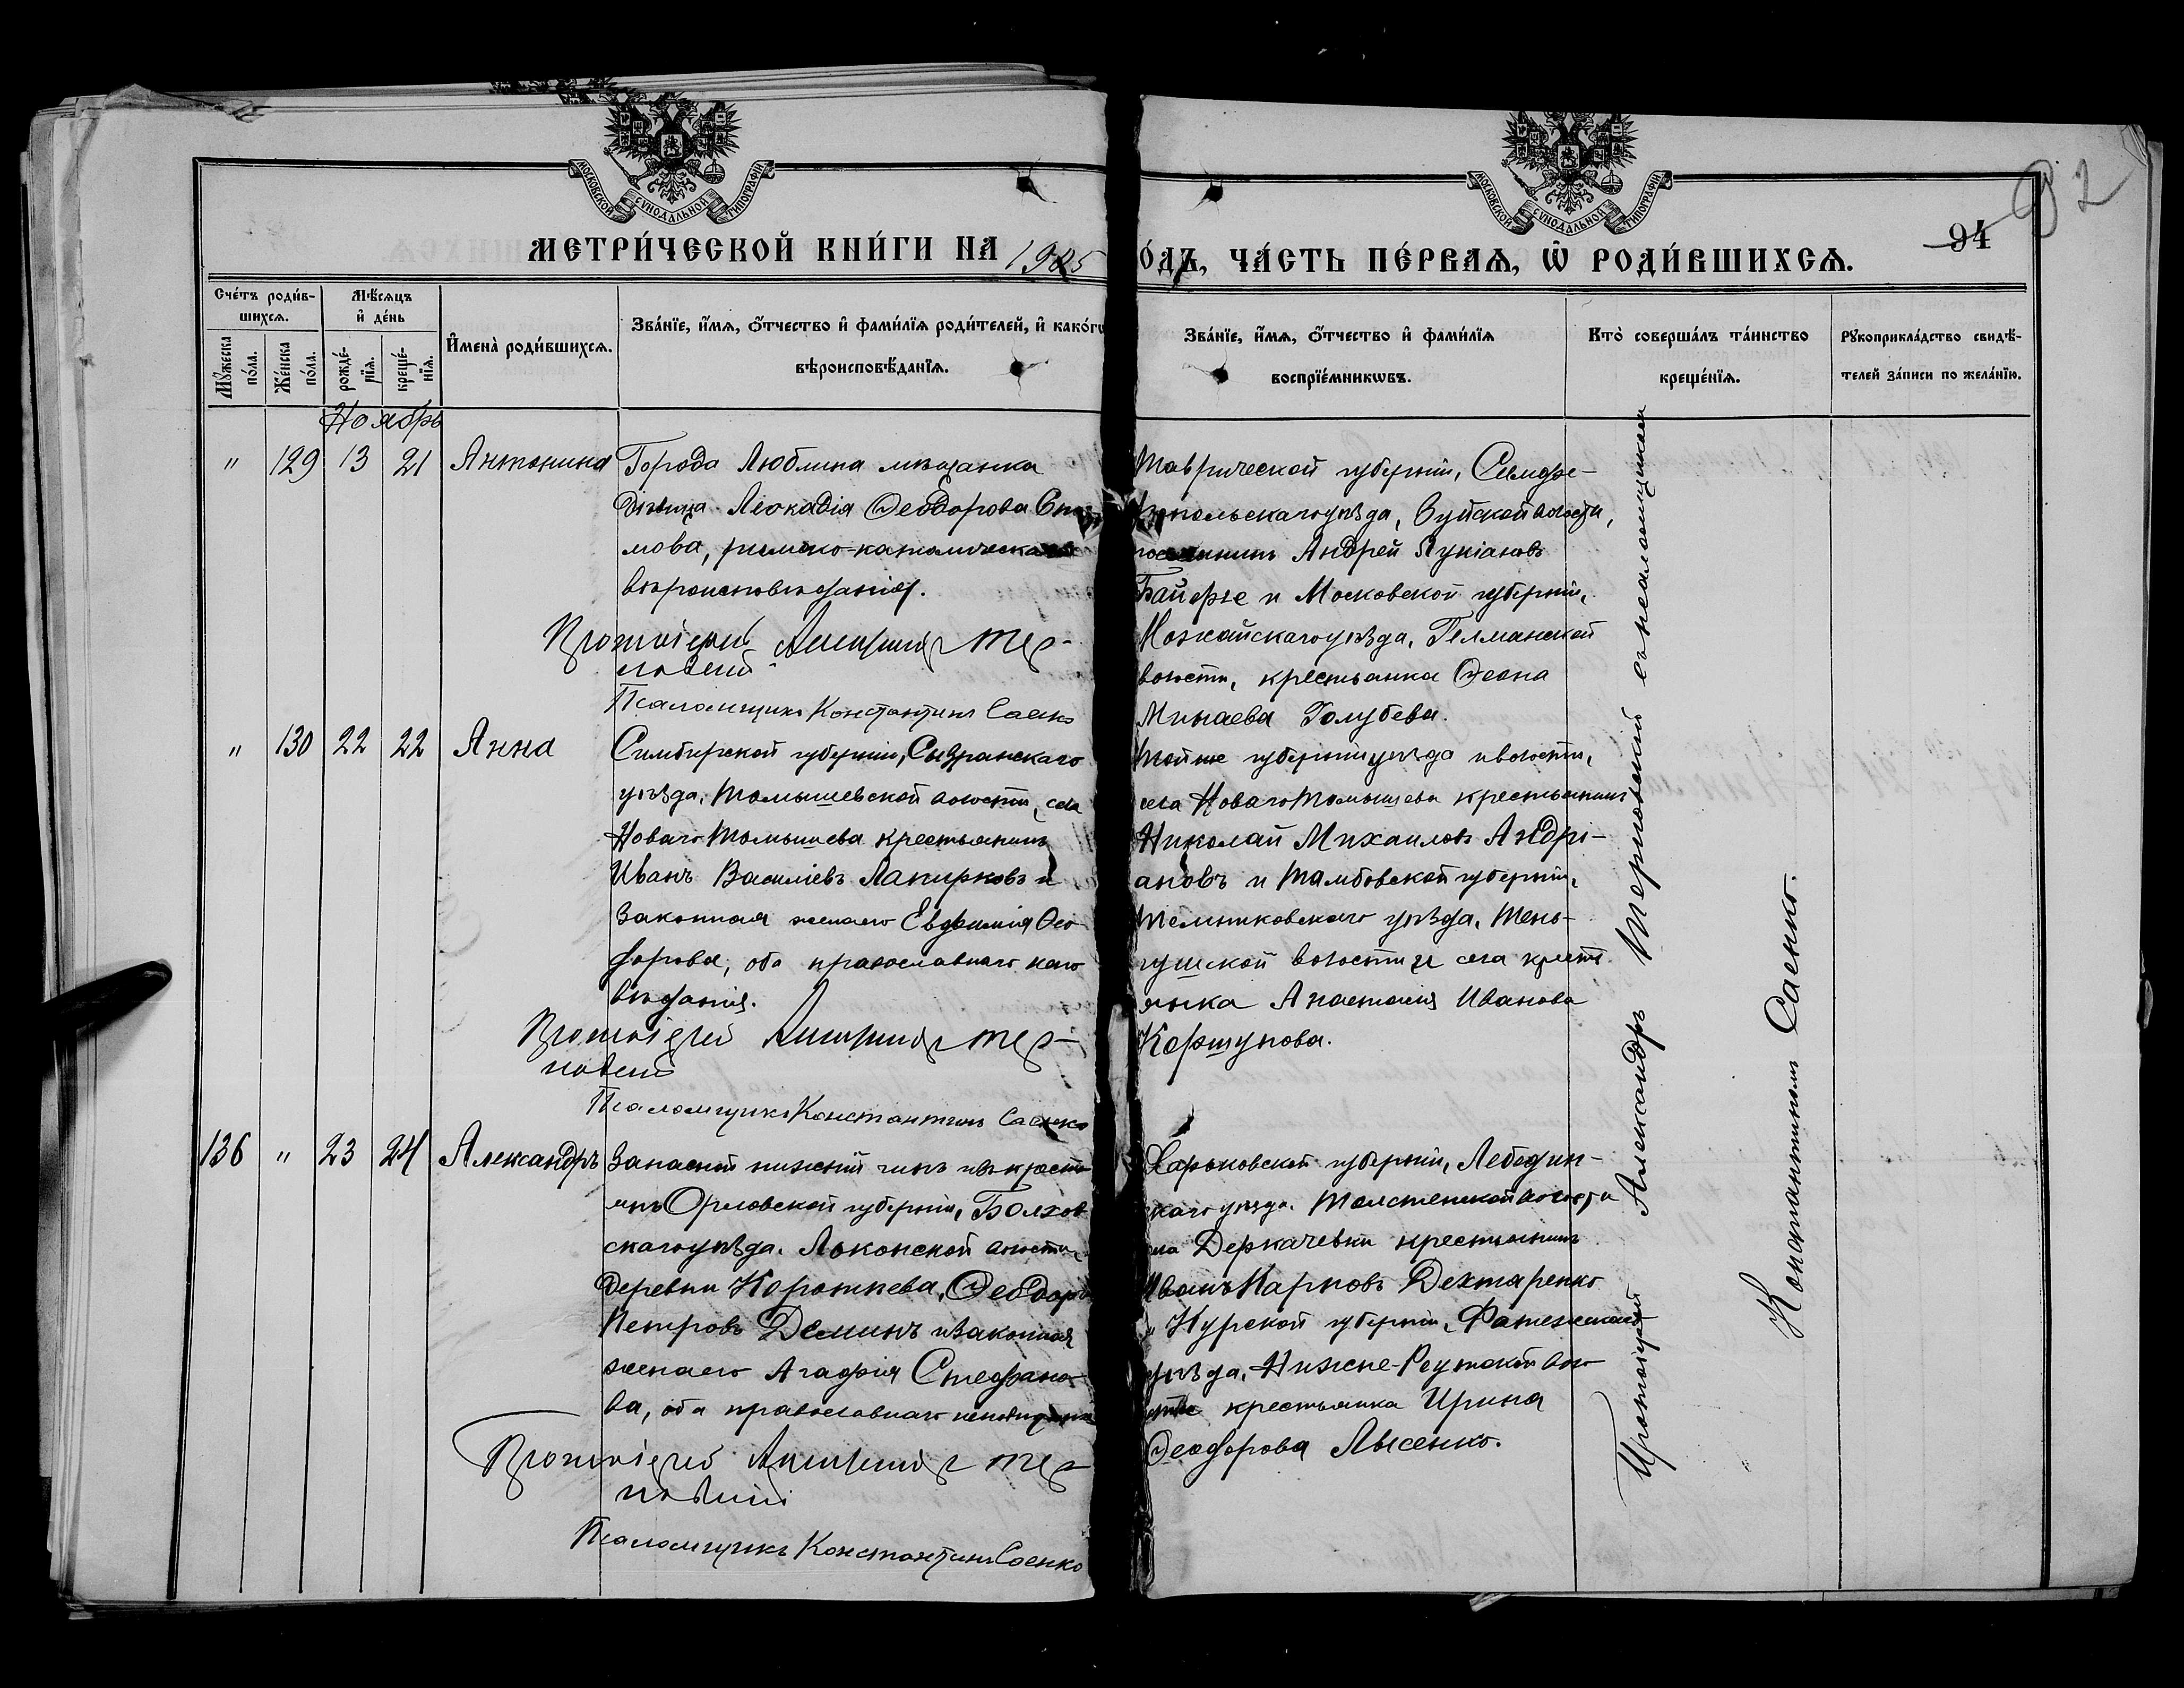 МОСКОВСКОЙ СѴНОДАЛЬНОЙ ТИПОГРАФІИ
МОСКОВСКОЙ СѴНОДАЛЬНОЙ ТИПОГРАФІИ
МЕТРИ́ЧЕСКОЙ КНИ́ГИ НА 1905
О́ДЪ, ЧА́СТЬ ПЕ́РВАѦ, Ѽ РОДИ́ВШИХСѦ.
94
92
Сче́тъ роди́в-
шихсѧ.
Мꙋ́жеска
по́ла.
Же́нска
по́ла.
Мѣ́сѧцъ
и҆ де́нь
рожде́-
нїѧ.
креще́-
нїѧ.
И҆мена̀ роди́вшихсѧ.
Зва́нїе, и҆́мѧ, ѻ҆́тчество и҆ фами́лїѧ роди́телей, и҆ како́гѡ
вѣроисповѣ́данїѧ.
Зва́нїе, и҆́мѧ, ѻ҆́тчество и҆ фами́лїѧ
воспрїе́мникѡвъ.
Кто̀ соверша́лъ та́инство
креще́нїѧ.
Рꙋкоприкла́дство свидѣ́-
телей за́писи по жела́нїю.
Ноябрь
" 129 13 21 Антонина
Города Люблина мѣщанка
дѣвица Леокадія Ѳеодорова
мова, римско-католическаго
вѣроисповѣданія.
Протоіерей Александръ Тер-
новскій
Псаломщикъ Константинъ Саенко
Таврической губерніи, Симфе-
ропольскаго уѣзда, Зуйской волости,
поселянинъ Андрей Лукіановъ
Байфже и Московской губерніи,
Можайскаго уѣзда, Глманской
волости, крестьянка Ѳеона
Минаева Голубева.
" 130 22 22 Анна
Симбирской губерніи, Сызранскаго
уѣзда, Томышевской волости, села
Новаго Томышева крестьянинъ
Иванъ Василіевъ Лапирковъ и
законная жена его Евфимія Ѳео-
дорова, оба православнаго испо-
вѣданія.
Протоіерей Александръ Тер-
новскій
Псаломщикъ Константинъ Саенко
Той же губерніи уѣзда и волости,
села Новаго Томышева крестьянинъ
Николай Михаиловъ Андрі-
ановъ и Тамбовской губерніи,
Темниковскаго уѣзда, Тень-
гушской волости и села кресть-
янка Анастасія Иванова
Коршунова.
136 " 23 24 Александръ
Запасной нижній чинъ изъ кресть-
янъ Орловской губерніи, Болхов-
скаго уѣзда, Локонской волости,
деревни Коротнева, Ѳеодоръ
Петровъ Деминъ и законная
жена его Агафія Стефано-
ва, оба православнаго исповѣданія
Протоіерей Александръ Тер-
новскій
Псаломщикъ Константинъ Саенко
Харьковской губерніи, Лебедин-
скаго уѣзда, Толстенской волости
села Деркачевки крестьянинъ
Иванъ Карповъ Дехтаренко
и Курской губерніи, Фатежскаго
уѣзда, Нижне-Реутской воло-
сти крестьянка Ирина
Ѳеодорова Лысенко.
Протоіерей Александръ Терновскій съ псаломщикомъ
Константиномъ Саенко.